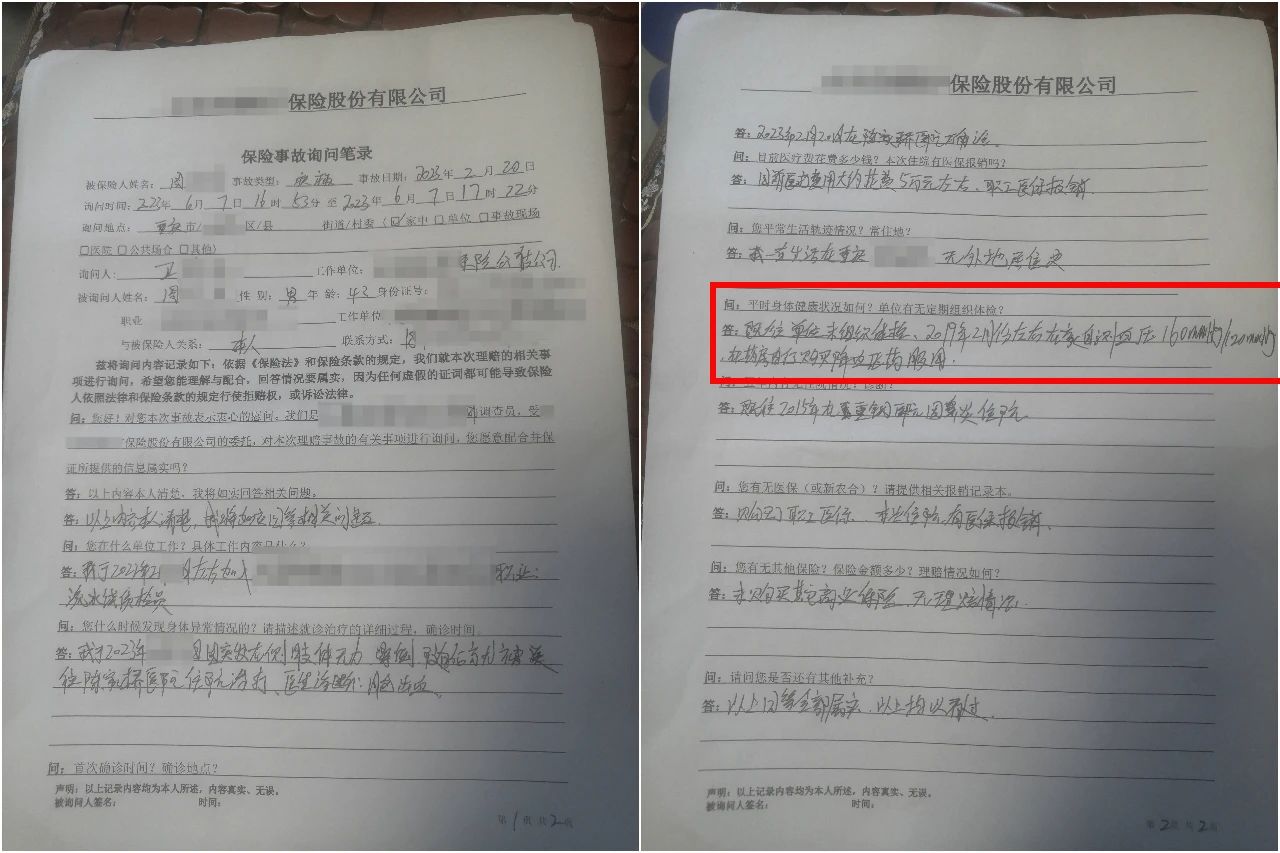 保险股份有限公司
保险事故询问笔录
被保险人姓名：周 事故类型：疾病 事故日期：2023年 2 月 20 日
询问时间：2023年 6 月 7 日 16 时 53 分 至 2023 年 6 月 7 日 17 时 22 分
询问地点：重庆 市/ 区/县 街道/村委（☑家中 □单位 □事故现场
□医院 □公共场合 □其他）
询问人： 工作单位： 保险公估公司
被询问人姓名：周 性 别：男 年 龄：43 身份证号：
职业 工作单位
与被保险人关系：本人 联系方式：
兹将询问内容记录如下：依据《保险法》和保险条款的规定，我们就本次理赔的相关事
项进行询问，希望您能理解与配合，回答情况要属实，因为任何虚假的证词都可能导致保险
人依照法律和保险条款的规定行使拒赔权，或诉讼法律。
问：您好！对您本次事故表示衷心的慰问，我们是 调查员，受
保险股份有限公司的委托，对本次理赔事故的有关事项进行询问，您愿意配合并保
证所提供的信息属实吗？
答：以上内容本人清楚，我将如实回答相关问题。
答：以上内容本人清楚，我将如实回答相关问题
问：您在什么单位工作？具体工作内容是什么？
答：我于2022年 月左右加入 职业：
流水线质检员
问：您什么时候发现身体异常情况的？请描述就诊治疗的详细过程，确诊时间。
答：我于2023年 月 因突发左侧肢体无力 晕倒 送
往陈家桥医院住院治疗、医生诊断：脑出血
问：首次确诊时间？确诊地点？
声明：以上记录内容均为本人所述，内容真实、无误。
被询问人签名： 时间：
第 1 页 共 2 页
保险股份有限公司
答：2023年2月20日在陈家桥医院确诊。
问：目前医疗费花费多少钱？本次住院有医保报销吗？
答：目前医疗费用大约花费5万元左右、职工医保报销
问：您平常生活轨迹情况？常住地？
答：我一直生活在重庆 无外地居住史
问：平时身体健康状况如何？单位有无定期组织体检？
答：既往单位未组织体检、2019年2月份左右在家自测血压160mmHg/120mmHg
在药房自行购买降血压药服用
答：既往2015年在 医院因 住院
问：您有无医保（或新农合）？请提供相关报销记录本。
答：购买了职工医保、本次住院有医保报销
问：您有无其他保险？保险金额多少？理赔情况如何？
答：未购买其它商业保险、无理赔情况
问：请问您是否还有其他补充？
答：以上回答全部属实、以上均以看过
声明：以上记录内容均为本人所述，内容真实、无误。
被询问人签名： 时间：
第 2 页 共 2 页